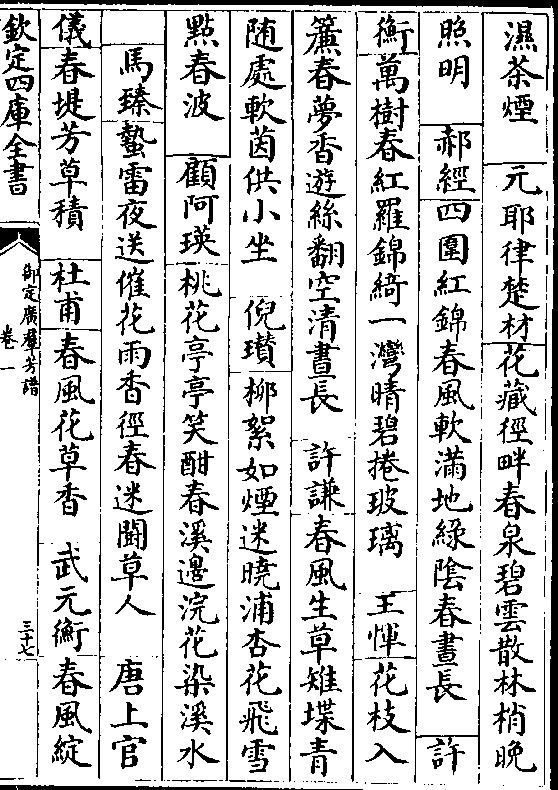 濕茶煙　元耶律楚材花藏徑畔春泉碧雲散林梢晚
照明　郝經四圍紅錦春風軟滿地綠陰春晝長　許
衡萬樹春紅羅錦綺一灣晴碧捲玻璃　王惲花枝入
簾春夢香遊絲翻空清晝長　許謙春風生草雉堞青
随處軟茵供小坐　倪瓚柳絮如煙迷曉浦杏花飛雪
點春波　顧阿瑛桃花亭亭笑酣春溪邊浣花染溪水
馬臻蟄雷夜送催花雨香徑春迷鬭草人　唐上官
儀春堤芳草積　杜甫春風花草香　武元衡春風綻
欽定四庫全書
御定廣羣芳譜
卷一
三十七